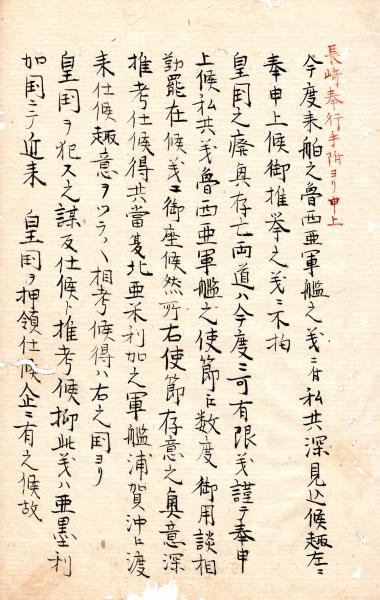 長崎奉行手附ヨリ申上
今度来舶之魯西亜軍艦之義ニ付私共深見込候趣左ニ
奉申上候御推挙之義ニ不拘
皇国之廃興存亡両道ハ今度ニ可有限義謹テ奉申
上候私共義魯西亜軍艦之使節江数度御用談相
勤罷在候義ニ御座候然所右使節存意之奥意深
推考仕候得共當夏北亜米利加之軍艦浦賀沖江渡
来仕候趣意ヲツラ〱相考候得ハ右之国ヨリ
皇国ヲ犯ス之謀反仕候ト推考候抑此義ハ亜墨利
加国ニテ近来 皇国ヲ押領仕候企ニ有之候故